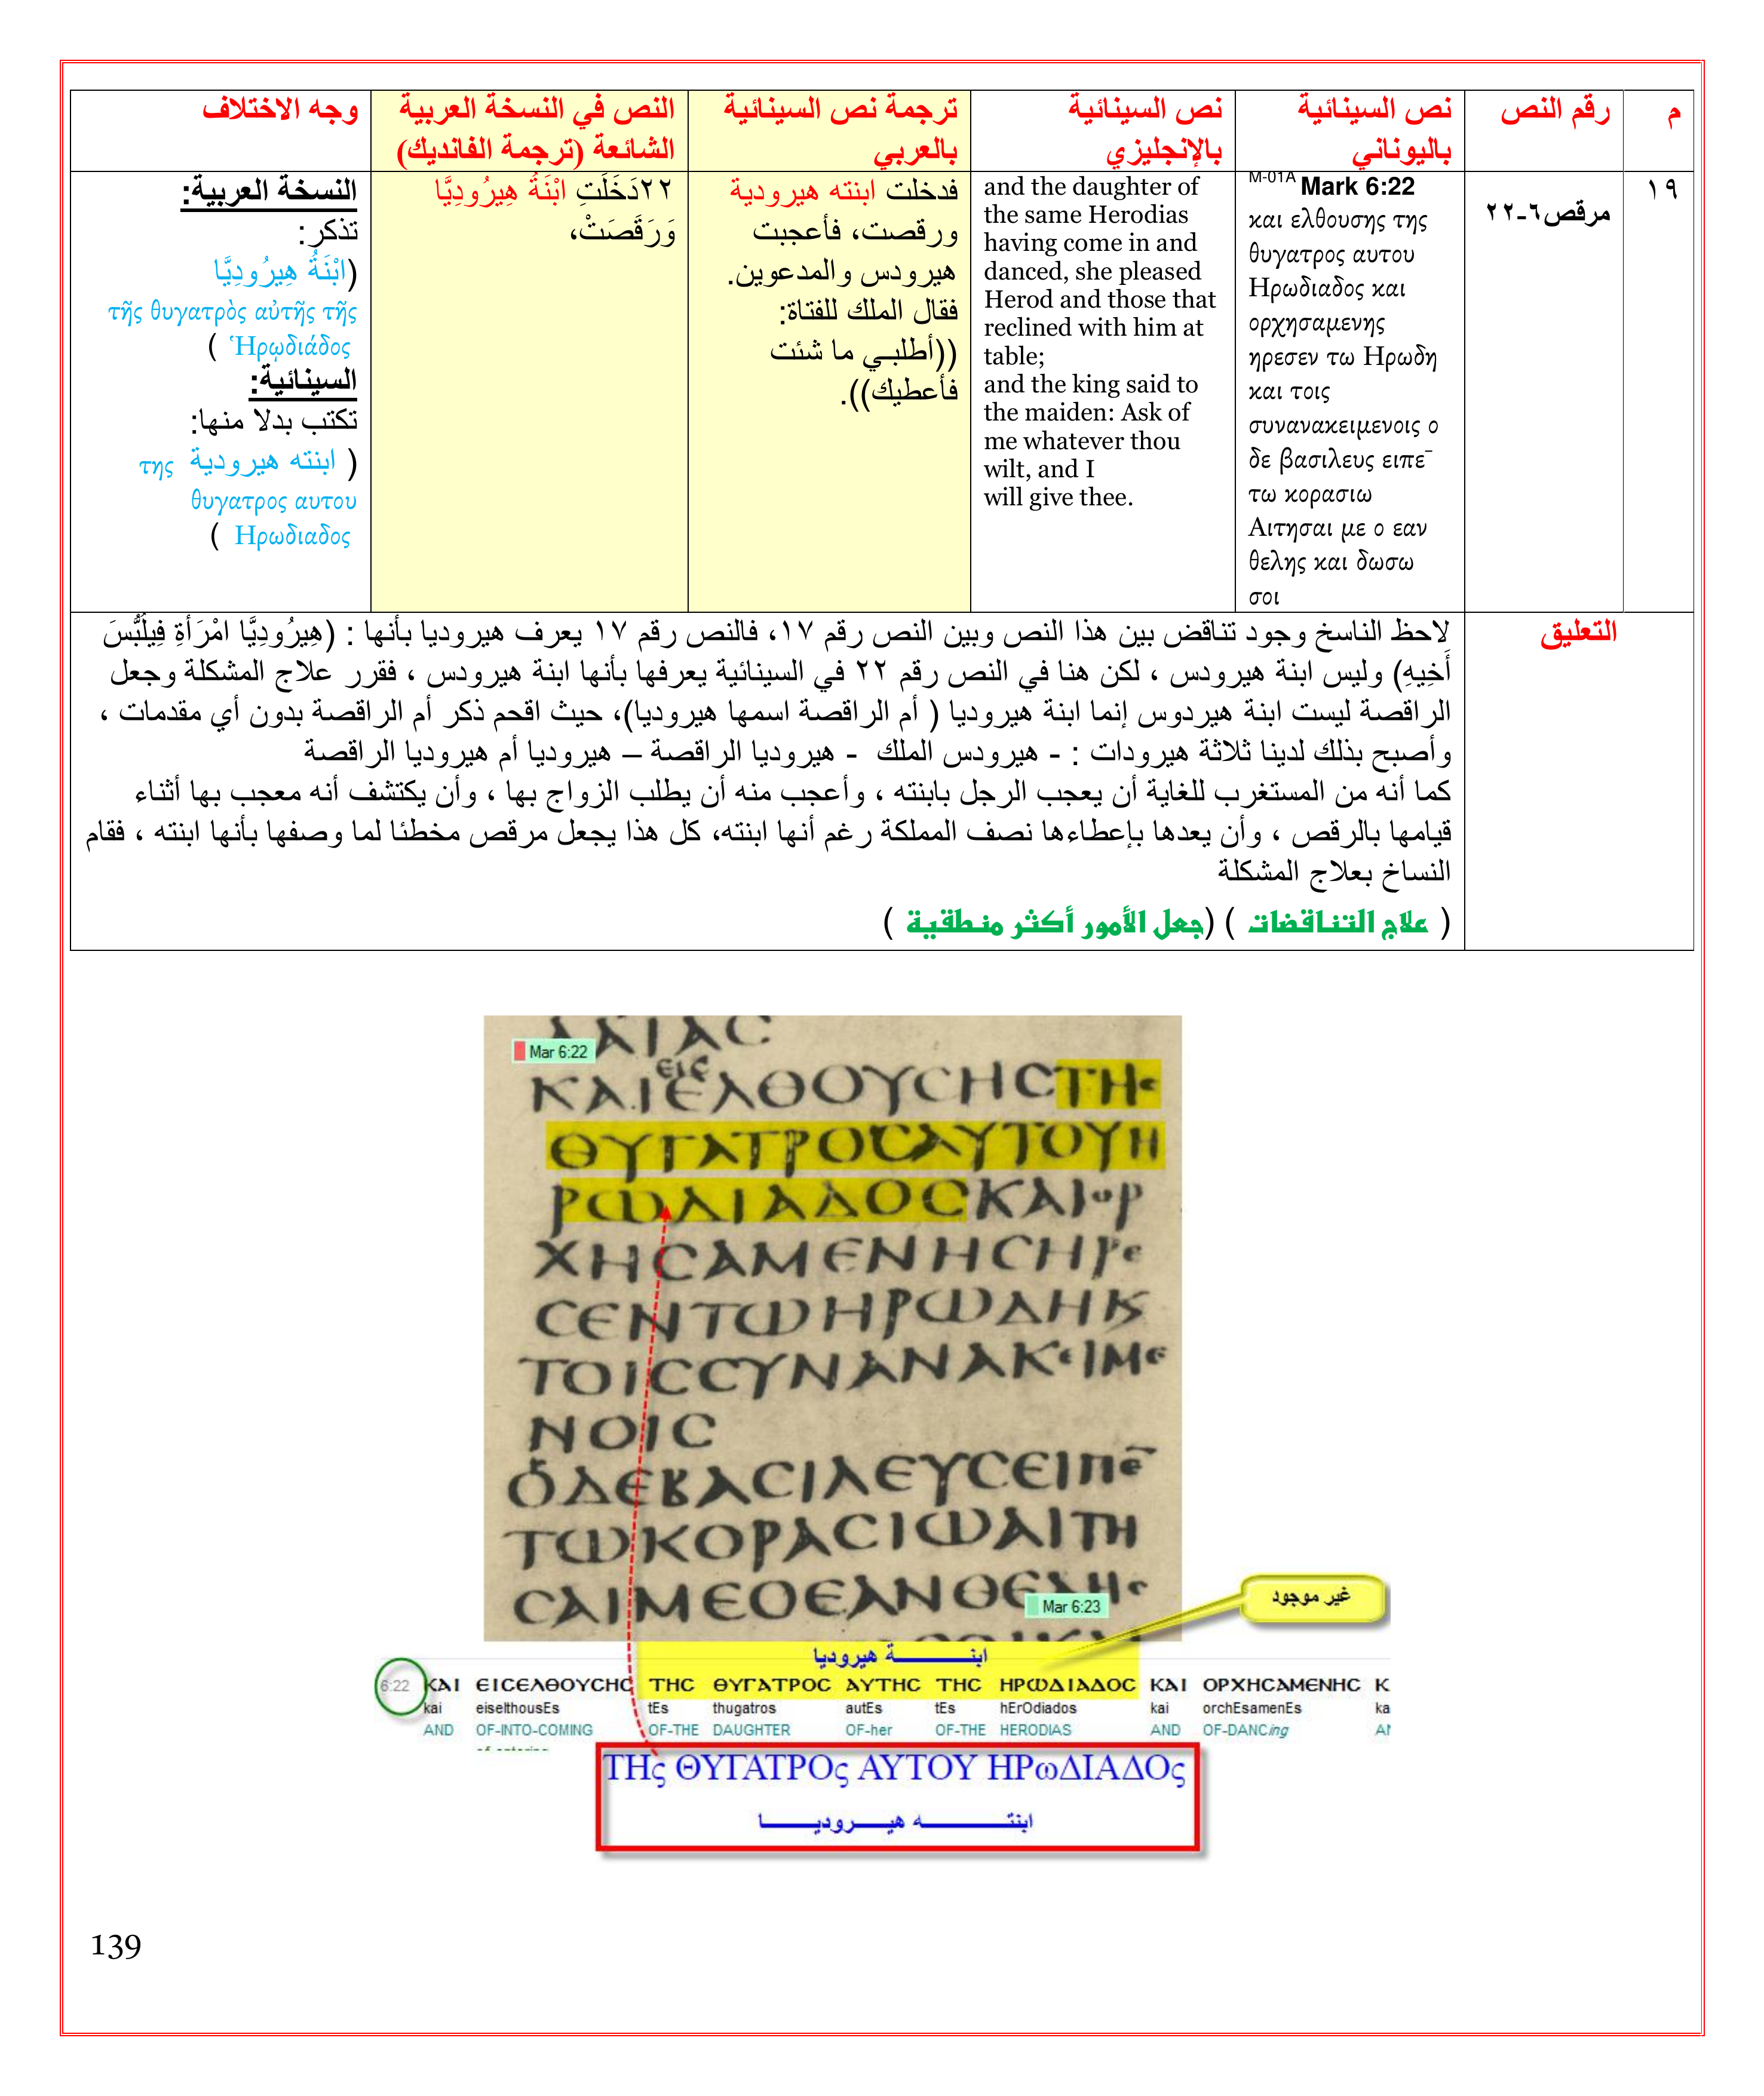 م
رقم النص
نص السينائية
باليوناني
نص السينائية
بالإنجليزي
ترجمة نص السينائية
بالعربي
النص في النسخة العربية
الشائعة (ترجمة الفانديك)
وجه الاختلاف
١٩
مرقص٦-٢٢
M-01A Mark 6:22
και ελθουσης της
θυγατρος αυτου
Ηρωδιαδος και
ορχησαμενης
ηρεσεν τω Ηρωδη
και τοις
συνανακειμενοις ο
δε βασιλευς ειπε¯
τω κορασιω
Αιτησαι με ο εαν
θελης και δωσω
σοι
and the daughter of
the same Herodias
having come in and
danced, she pleased
Herod and those that
reclined with him at
table;
and the king said to
the maiden: Ask of
me whatever thou
wilt, and I
will give thee.
فدخلت ابنته هيرودية
ورقصت، فأعجبت
هيرودس والمدعوين.
فقال الملك للفتاة:
((أطلبـي ما شئت
فأعطيك)).
٢٢دَخَلَتِ ابْنَةُ هِيرُودِيَّا
وَرَقَصَتْ،
النسخة العربية:
تذكر:
(ابْنَةُ هِيرُودِيَّا
τῆς θυγατρὸς αὐτῆς τῆς
Ἡρῳδιάδος )
السينائية:
تكتب بدلا منها:
( ابنته هيرودية της
θυγατρος αυτου
Ηρωδιαδος )
التعليق
لاحظ الناسخ وجود تناقض بين هذا النص وبين النص رقم ١٧، فالنص رقم ١٧ يعرف هيروديا بأنها : (هِيرُودِيَّا امْرَأَةِ فِيلُبُّسَ
أَخِيهِ) وليس ابنة هيرودس ، لكن هنا في النص رقم ٢٢ في السينائية يعرفها بأنها ابنة هيرودس ، فقرر علاج المشكلة وجعل
الراقصة ليست ابنة هيردوس إنما ابنة هيروديا ( أم الراقصة اسمها هيروديا)، حيث اقحم ذكر أم الراقصة بدون أي مقدمات ،
وأصبح بذلك لدينا ثلاثة هيرودات : - هيرودس الملك - هيروديا الراقصة – هيروديا أم هيروديا الراقصة
كما أنه من المستغرب للغاية أن يعجب الرجل بابنته ، وأعجب منه أن يطلب الزواج بها ، وأن يكتشف أنه معجب بها أثناء
قيامها بالرقص ، وأن يعدها بإعطاءها نصف المملكة رغم أنها ابنته، كل هذا يجعل مرقص مخطئا لما وصفها بأنها ابنته ، فقام
النساخ بعلاج المشكلة
( علاج التناقضات ) (جعل الأمور أكثر منطقية )
Mar 6:22
ΕΙϹ
ΚΑΙΕΛΘΟΥϹΗϹΤΗϹ
ΘΥΓΑΤΡΟϹΑΥΤΟΥΗ
ΡΩΔΙΑΔΟϹΚΑΙΟΡ
ΧΗϹΑΜΕΝΗϹΗΡΕ
ϹΕΝΤΩΗΡΩΔΗΚ
ΤΟΙϹϹΥΝΑΝΑΚΕΙΜΕ
ΝΟΙϹ
ΟΔΕΒΑϹΙΛΕΥϹΕΙΠΕ¯
ΤΩΚΟΡΑϹΙΩΑΙΤΗ
ϹΑΙΜΕΟΕΑΝΘΕΛΗϹ
Mar 6:23
غير موجود
ابنـــــــة هيروديا
6:22 ΚΑΙ ΕΙϹΕΛΘΟΥϹΗϹ ΤΗϹ ΘΥΓΑΤΡΟϹ ΑΥΤΗϹ ΤΗϹ ΗΡΩΔΙΑΔΟϹ ΚΑΙ ΟΡΧΗϹΑΜΕΝΗϹ Κ
kai eiselthousEs tEs thugatros autEs tEs hErOdiados kai orchEsamenEs ka
AND OF-INTO-COMING OF-THE DAUGHTER OF-her OF-THE HERODIAS AND OF-DANCing AN
ΤΗς ΘΥΓΑΤΡΟς ΑΥΤΟΥ ΗΡωΔΙΑΔΟς
ابنتـــــــه هيـــروديـــــا
139